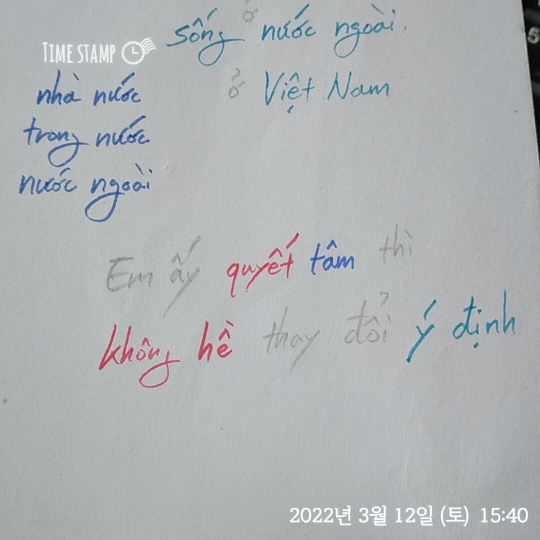 ở
sống nước ngoài.
TIME STAMP
nhà nước
ở Việt Nam
trong nước
nước ngoài
Em ấy quyết tâm thì
không hề thay đổi ý định
2022년 3월 12일 (토) 15:40